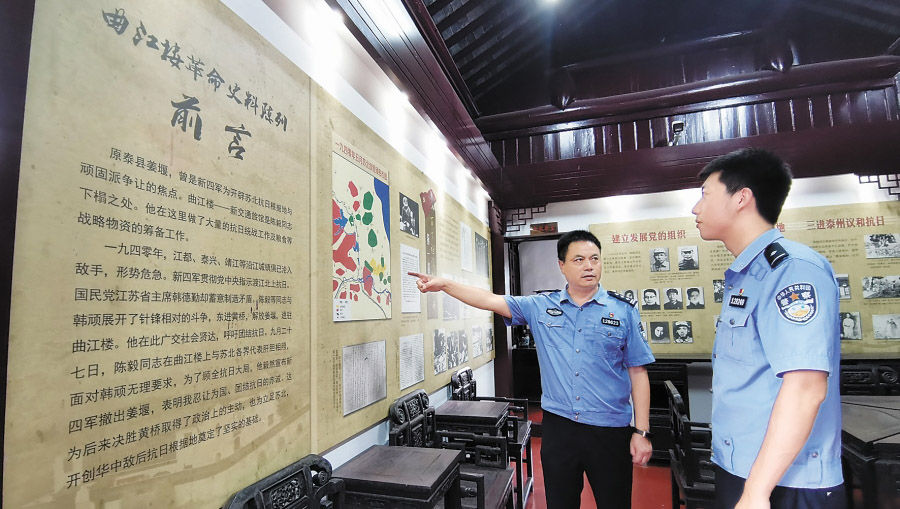 曲江楼革命史料陈列
前言
原泰县姜堰，曾是新四军为开辟苏北抗日根据地与
顽固派争让的焦点。曲江楼——新交通旅馆是陈毅同志
下榻之处。他在这里做了大量的抗日统战工作及粮食等
战略物资的筹备工作。
一九四零年，江都、泰兴、靖江等沿江城镇俱已沦入
敌手，形势危急。新四军贯彻党中央指示渡江北上抗日，
国民党江苏省主席韩德勤却蓄意制造矛盾。陈毅等同志与
韩顽展开了针锋相对的斗争，东进黄桥，解放姜堰，进驻
曲江楼。他在此广交社会贤达，呼吁团结抗日。九月二十
七日，陈毅同志在曲江楼上与苏北各界代表肝胆相明，
面对韩顽无理要求，为了顾全抗日大局，他毅然宣布新
四军撤出姜堰，表明我忍让为国、团结抗日的赤诚。这
为后来决胜黄桥取得了政治上的主动，也为立足苏北，
开创华中敌后抗日根据地奠定了坚实的基础。
建立发展党的组织
地
三进泰州议和抗日